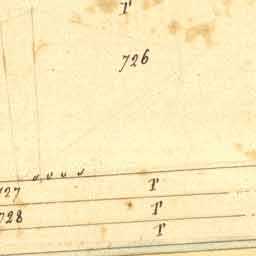 P
726
727 P
728 P
P